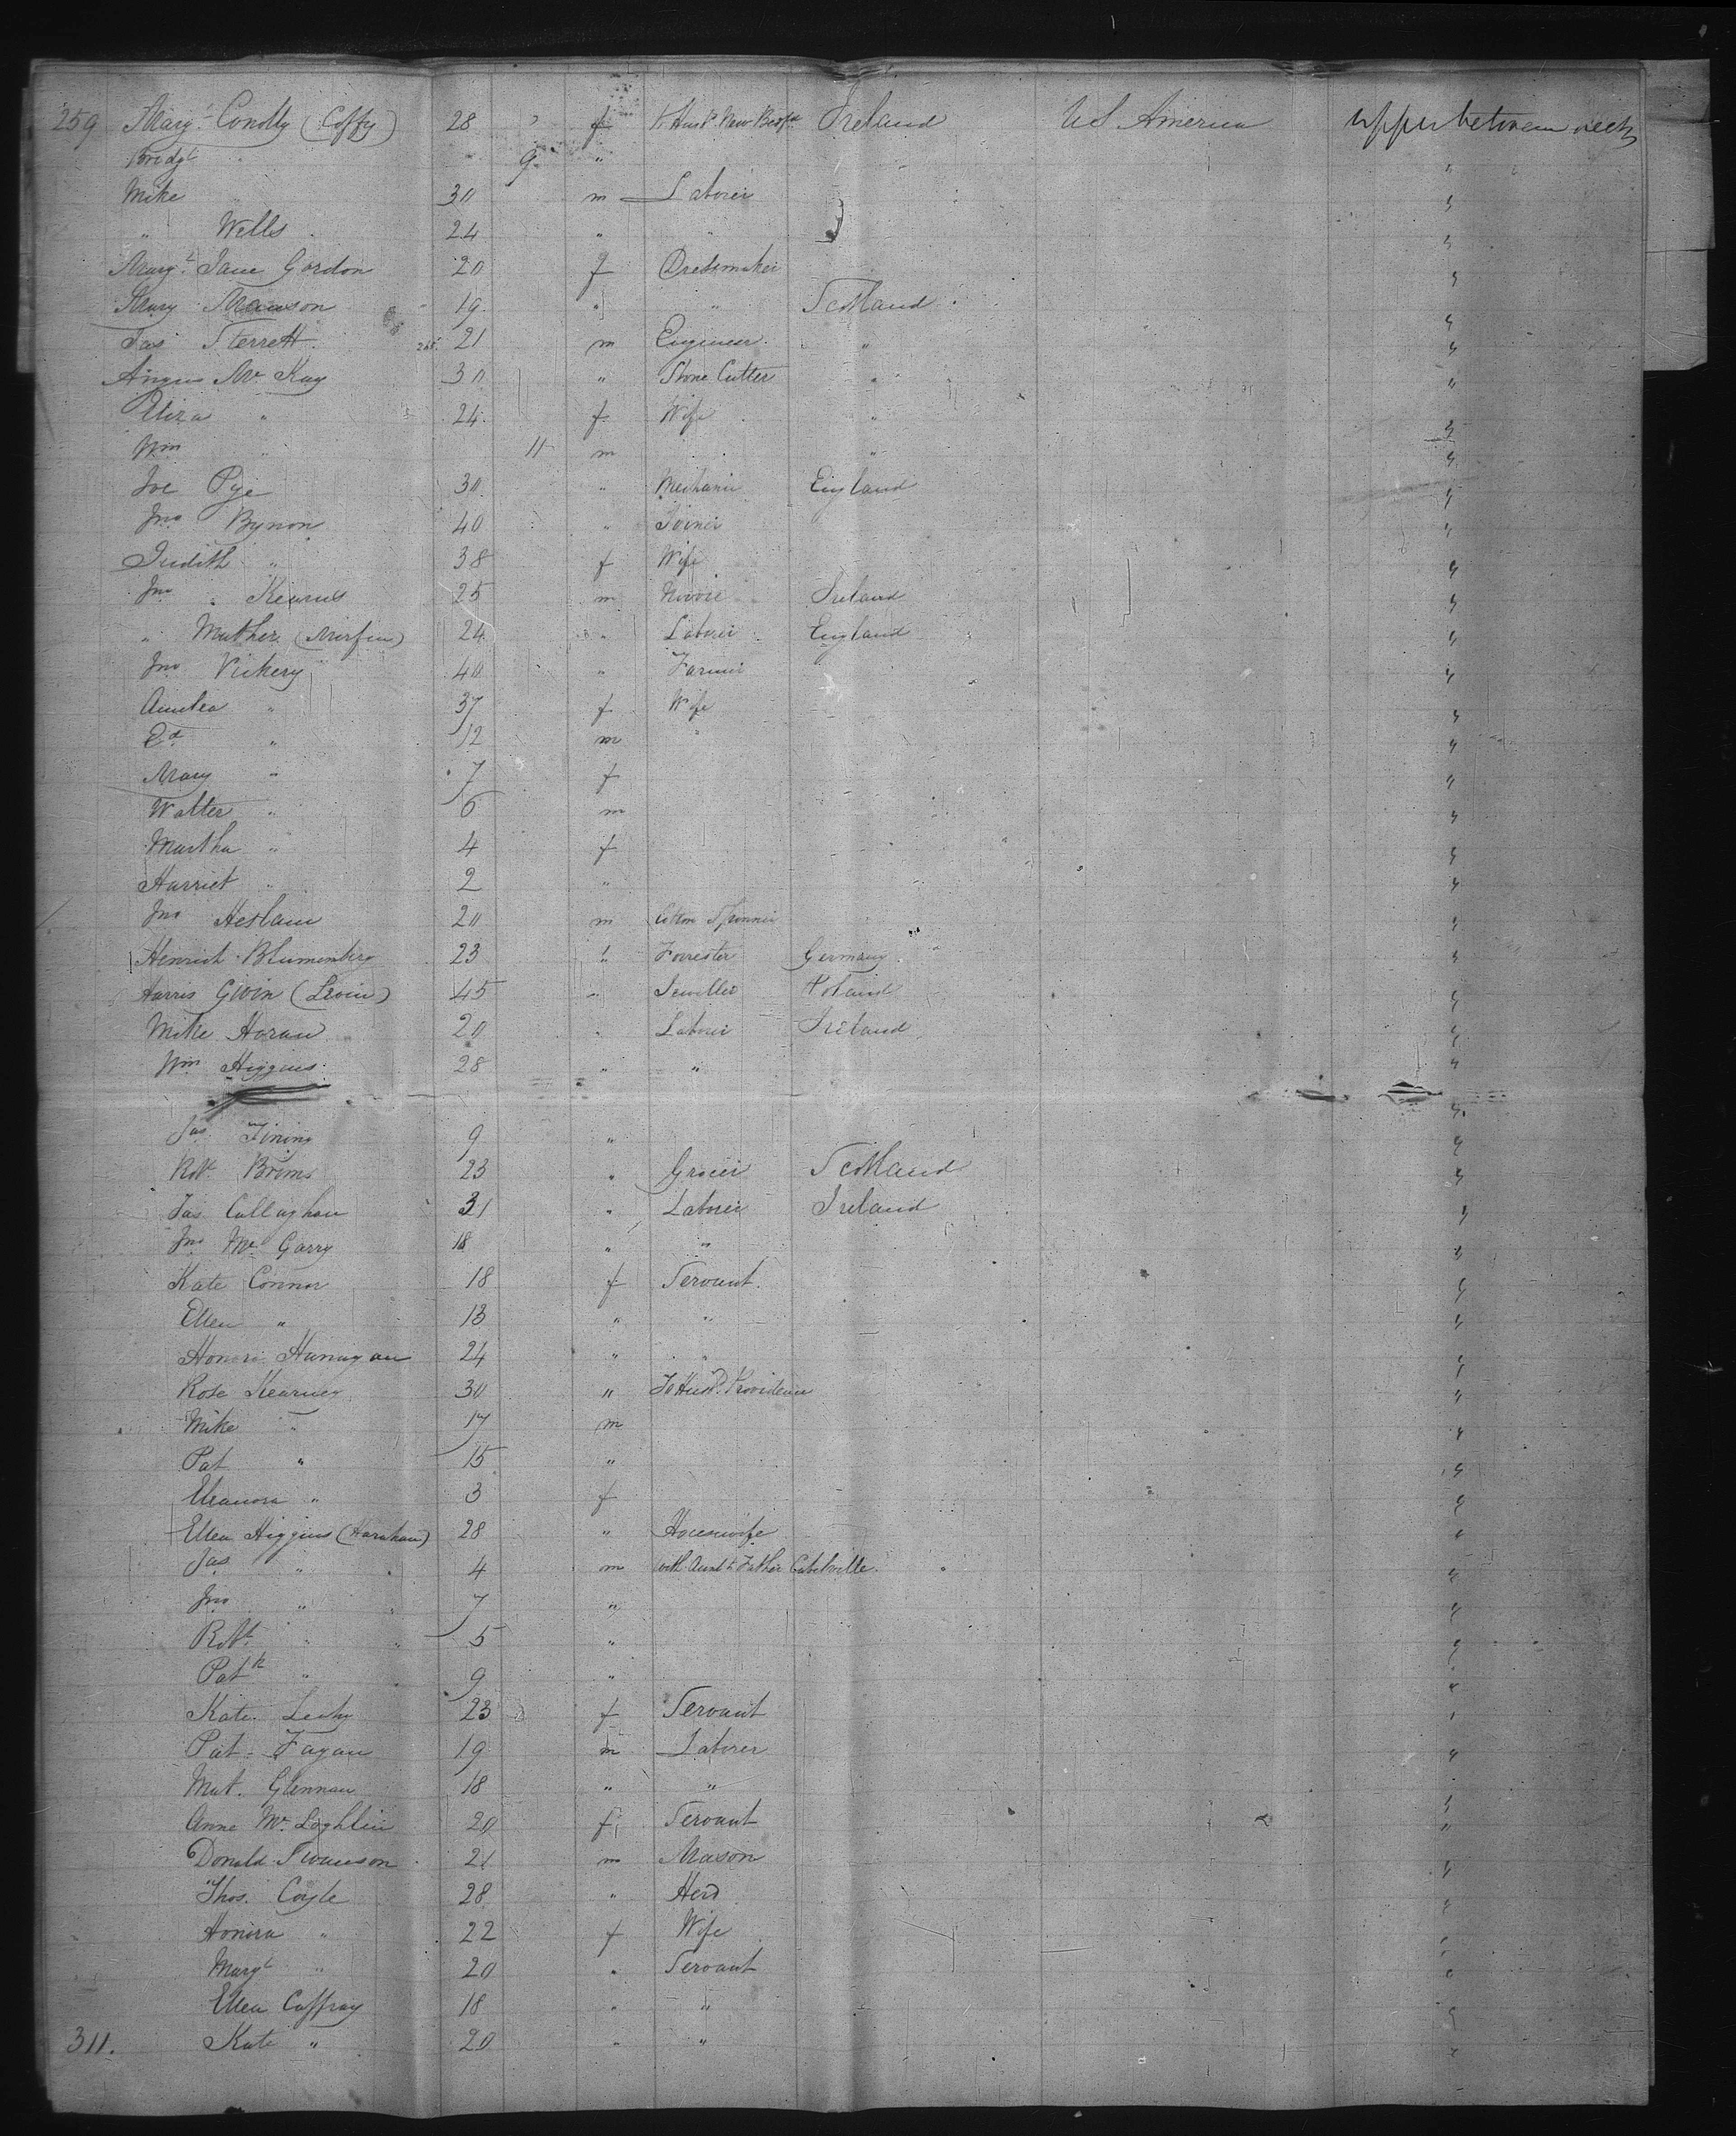 259 Margt Conolly (Coffy) 28 f to Husbd New Bedfd Ireland US America upper between decks
Bridgt " 9 " "
Mike 30 m Laborer "
" Wells 24 " " "
Margt Jane Gordon 20 f Dressmaker "
Mary Manson 19 " " Scotland "
Jas Sterrett 21 m Engineer " "
Angus Mc Kay 30 " Stone Cutter " "
Eliza " 24 f Wife " "
Wm " 11 m " "
Joe Pye 30 " Mechanic England "
Jno Bynon 40 " Joiner "
Judith " 38 f Wife "
Jno Kearns 25 m Ireland "
" Mather 24 " Laborer England "
Jno Vickery 40 " Farmer "
Amelia " 37 f Wife "
Ed " 12 m " "
Mary " 7 f "
Walter " 6 m "
Martha " 4 f "
Harriet " 2 " "
Jno Heslam 20 m Cotton Spinner "
Heinrich Blumenberg 23 " Forrester Germany "
Harris Givin (Levin) 45 " Jeweller Poland "
Mike Horan 20 " Laborer Ireland "
Wm Higgins 28 " " "
Jas Fining 9 " "
Robt Brims 23 " Grocer Scotland "
Jas Callaghan 31 " Laborer Ireland "
Jno Mc Garry 18 " " "
Kate Connor 18 f Servant "
Ellen " 13 " " "
Honora Hanagan 24 " " "
Rose Kearney 30 " To Husbd Providence "
Mike " 17 m "
Pat " 15 " "
Eleanora " 3 f "
Ellen Higgins (Harahan) 28 " Housewife "
Jas " 4 m with Aunt to Father "
Jno " 7 " "
Robt " 5 " "
Patk " 9 " "
Kate Leahy 23 f Servant "
Pat Fagan 19 m Laborer "
Mat. Glennan 18 " "
Anne Mc Loghlin 20 f Servant "
Donald Swanson 21 m Mason "
Thos. Coyle 28 " Herd "
Honora " 22 f Wife "
Margt " 20 " Servant "
Ellen Caffray 18 " " "
311. Kate " 20 " " "